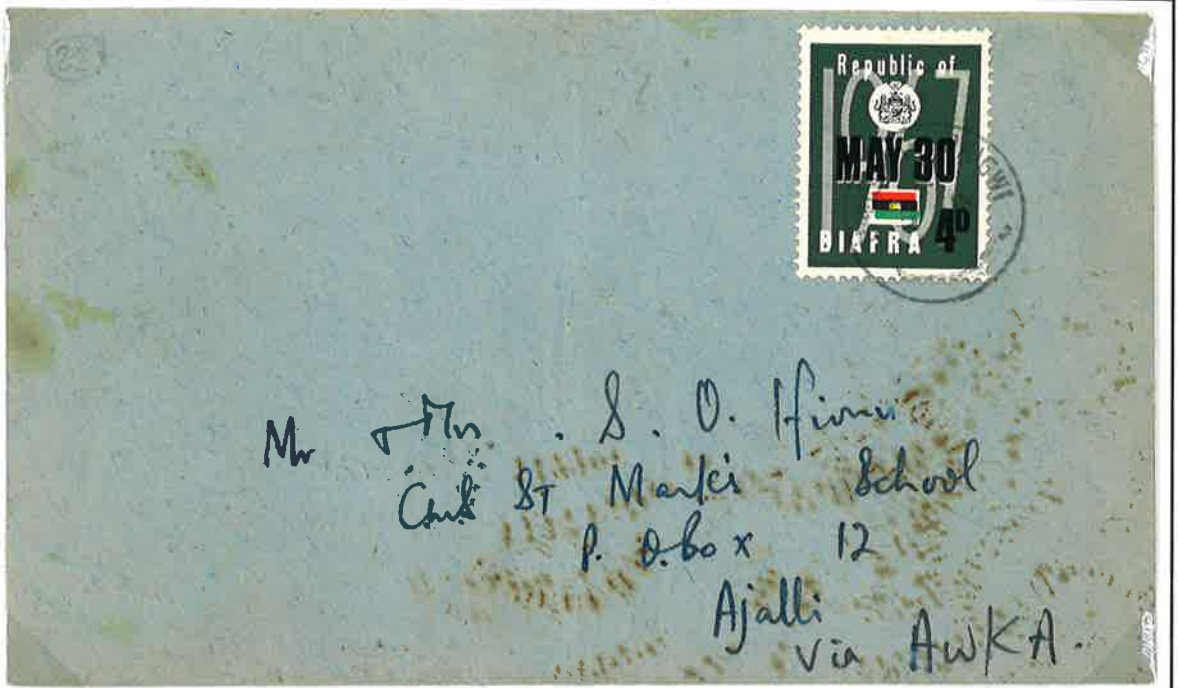 22
Republic of
1967
MAY 30
4D
BIAFRA
Mr Mrs S. O.
St Mark's School
P. O. box 12
Ajalli
via AWKA.